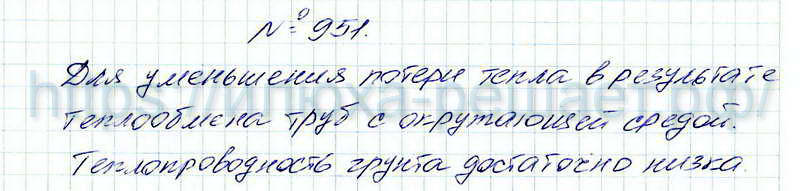 № 951.
Для уменьшения потери тепла в результате
теплообмена труб с окружающей средой.
Теплопроводность грунта достаточно низка.